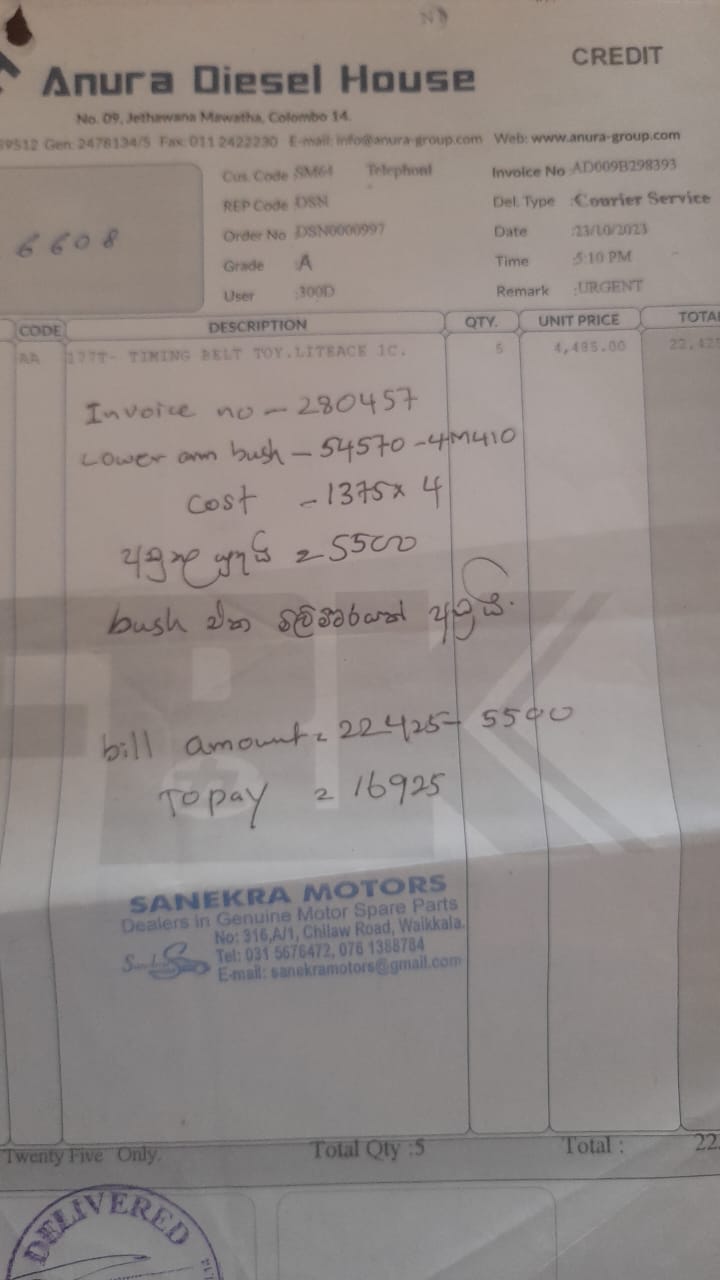 CREDIT
Anura Diesel House
No. 09, Jethawana Mawatha, Colombo 14.
59512 Gen: 2478134/5 Fax: 011 2422230 E-mail: info@anura-group.com Web: www.anura-group.com
6608
Cus. Code SM61 Telephone
REP Code DSN
Order No DSN0000997
Grade :A
User :300D
Invoice No AD009B298393
Del. Type :Courier Service
Date :23/10/2023
Time :5:10 PM
Remark :URGENT
CODE DESCRIPTION QTY. UNIT PRICE TOTAL
AA 177T- TIMING BELT TOY.LITEACE 1C. 5 4,485.00 22,425
Invoice no - 280457
Lower arm bush - 54570-4M410
cost - 1375 x 4
= 5500
bush එක
bill amount = 22425 - 5500
To pay = 16925
SANEKRA MOTORS
Dealers in Genuine Motor Spare Parts
No: 316,A/1, Chilaw Road, Waikkala.
Tel: 031 5676472, 076 1388784
E-mail: sanekramotors@gmail.com
Twenty Five Only. Total Qty :5 Total : 22
DELIVERED